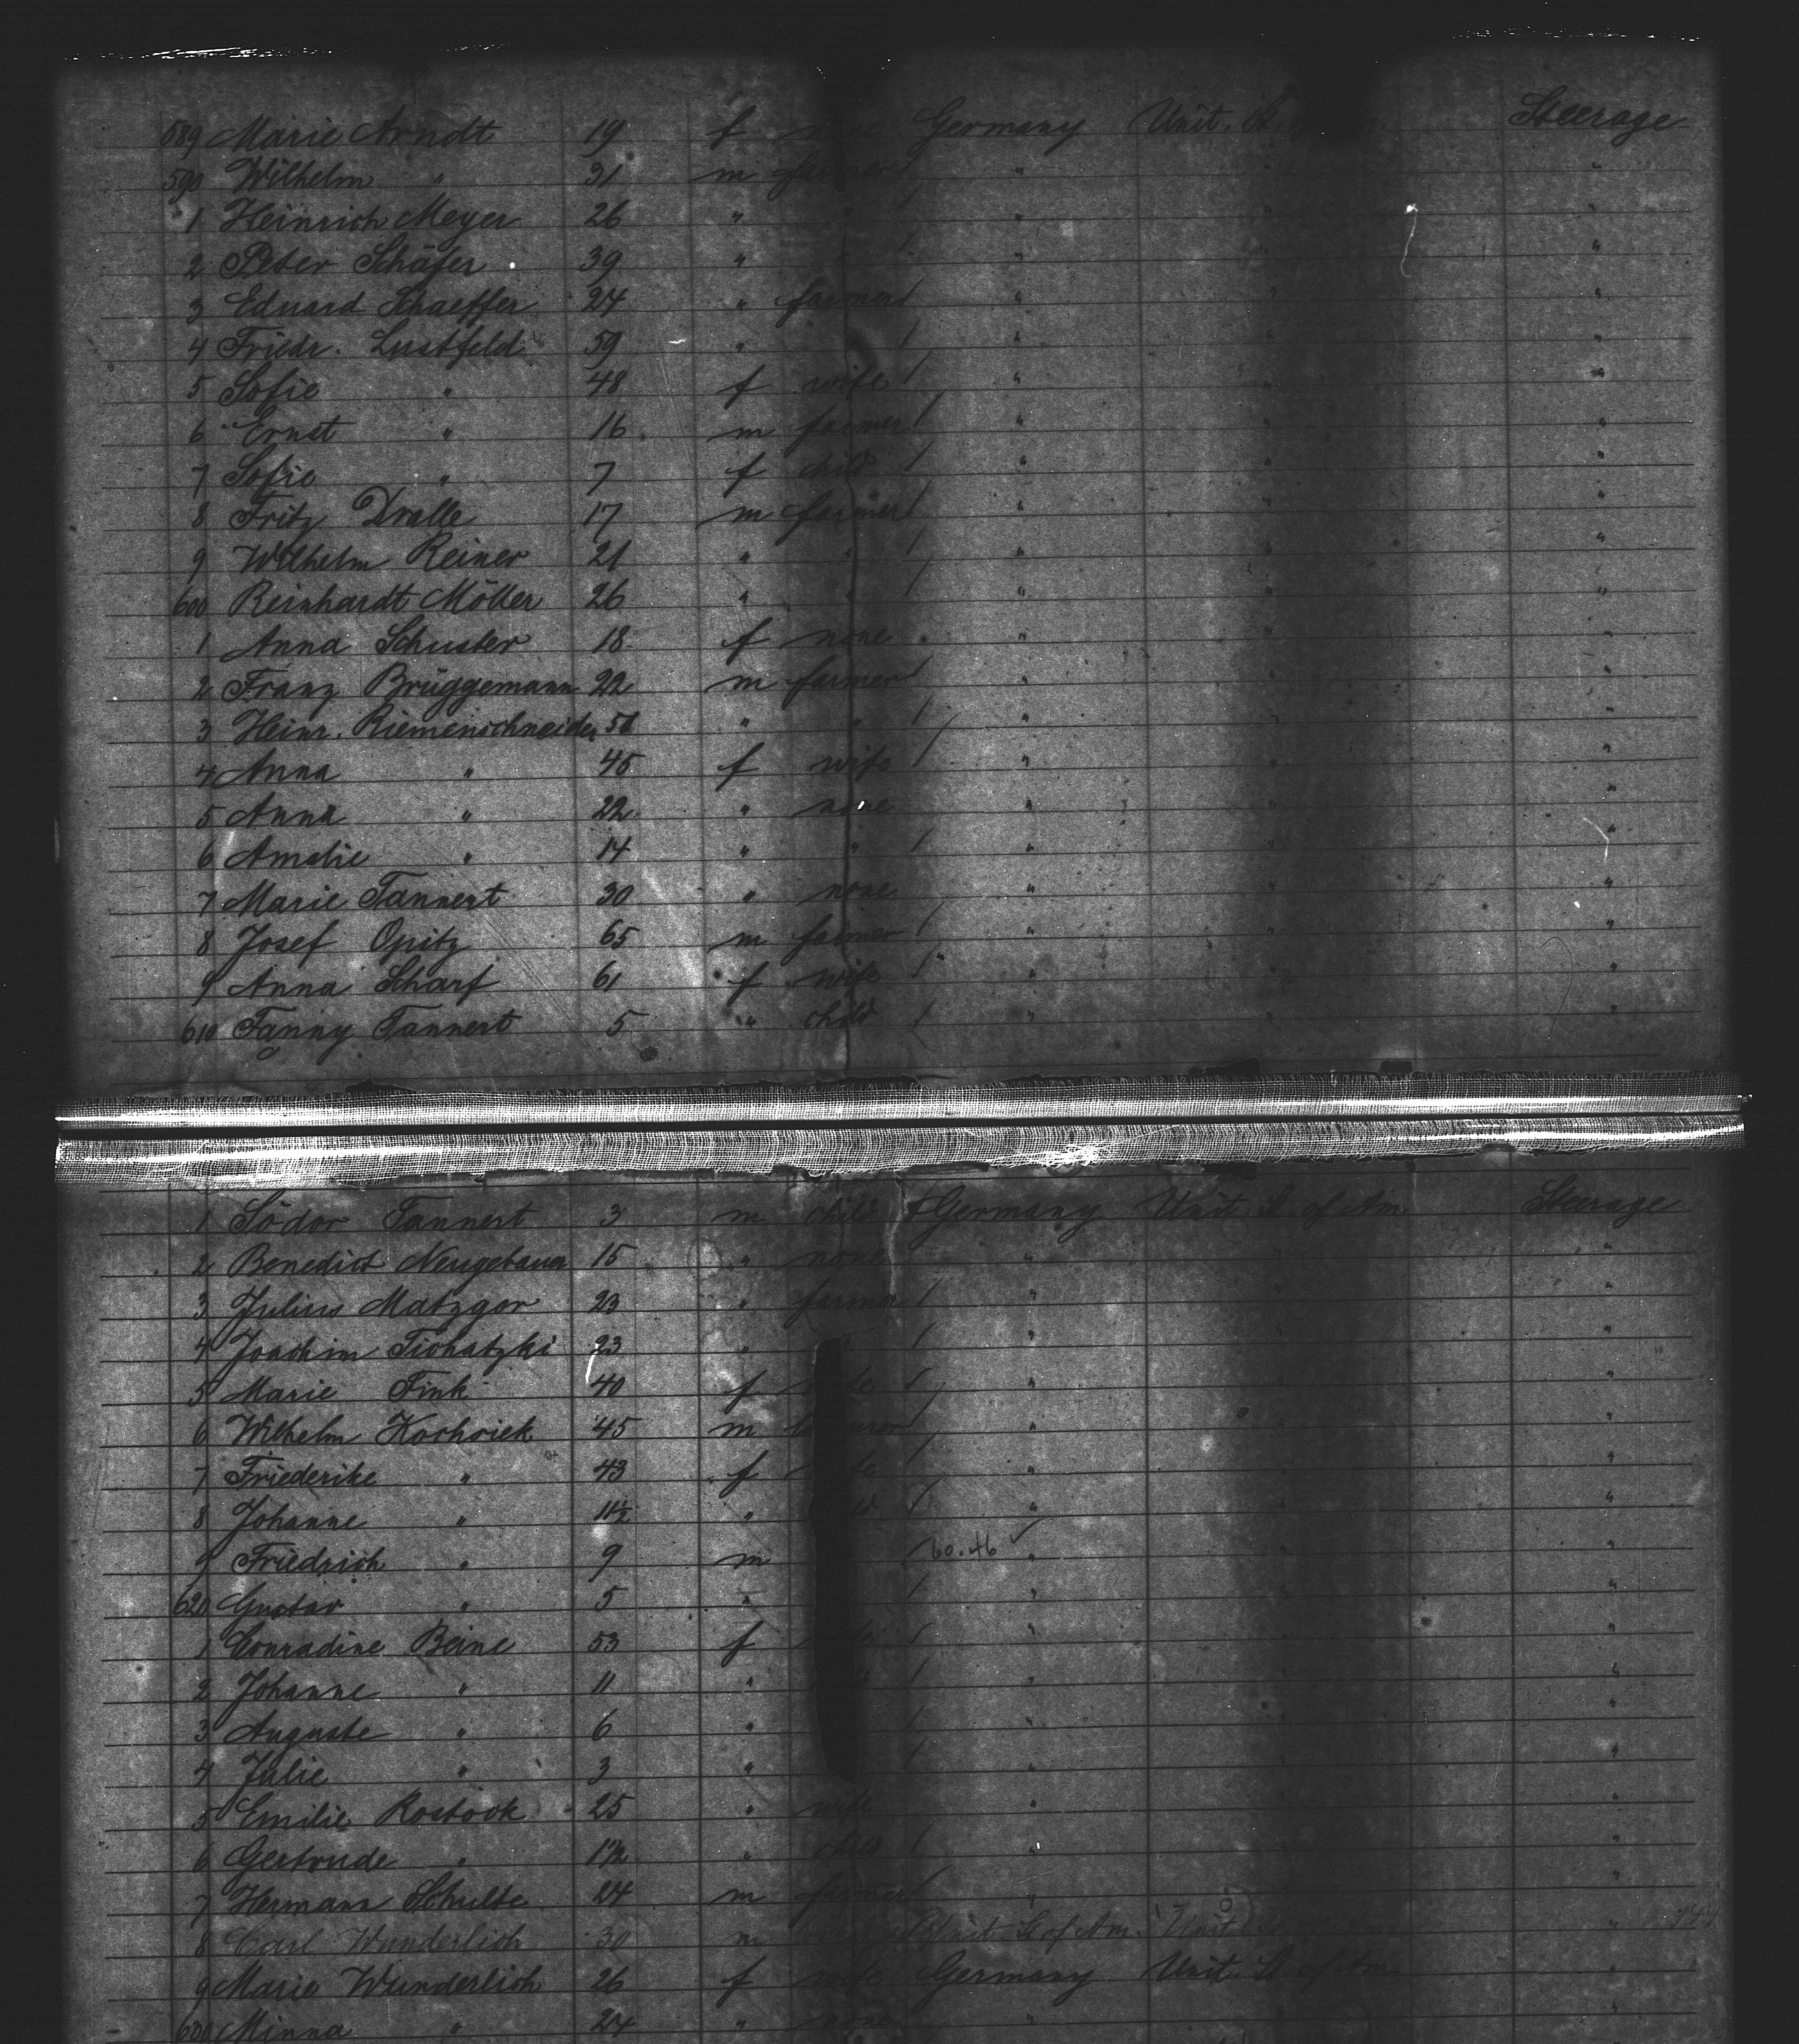 589 Marie Arndt 19 f none Germany Unit. St. Steerage
590 Wilhelm " 31 m farmer " " "
1 Heinrich Meyer 26 " " " " "
2 Peter Schäfer 39 " " " "
3 Eduard Schaeffer 24 " farmer " " "
4 Friedr. Lustfeld 59 " " " " "
5 Sofie " 48 f wife " " "
6 Ernst " 16 m farmer " " "
7 Sofie " 7 f child " " "
8 Fritz Dralle 17 m farmer " " "
9 Wilhelm Reiner 21 " " " " "
600 Reinhardt Möller 26 " " " " "
1 Anna Schuster 18 f none " " "
2 Franz Brüggemann 22 m farmer " " "
3 Heinr. Riemenschneider 51 " " " " "
4 Anna " 45 f wife " " "
5 Anna " 22 " none " " "
6 Amalie " 14 " " " " "
7 Marie Tannert 30 " none " " "
8 Josef Opitz 65 m farmer " " "
9 Anna Scharf 61 f wife " " "
610 Fanny Tannert 5 " child " " "
1 Isodor Tannert 3 m child Germany Unit. St. of Am. Steerage
2 Benedict Neugebauer 15 " none " " "
3 Julius Matzger 23 " farmer " " "
4 Joachim 23 " " " "
5 Marie Fink 40 f " " "
6 Wilhelm 45 m " " "
7 Friederike " 43 f " " "
8 Johanne " 11½ " " " "
9 Friedrich " 9 m 60.46 ✓ " " "
620 Gustav " 5 " " " "
1 Conradine Beine 53 f " " "
2 Johanne " 11 " " " " "
3 Auguste " 6 " " " "
4 Julie " 3 " " " "
5 Emilie Rostock 25 " wife " " "
6 Gertrude " 1½ " child " " "
7 Hermann Schulte 24 m farmer " " "
8 Carl Wunderlich 30 m Unit. St of Am. Unit. St. of Am. "
9 Marie Wunderlich 26 f wife Germany Unit. St. of Am. "
630 Minna " 24 " none " " "